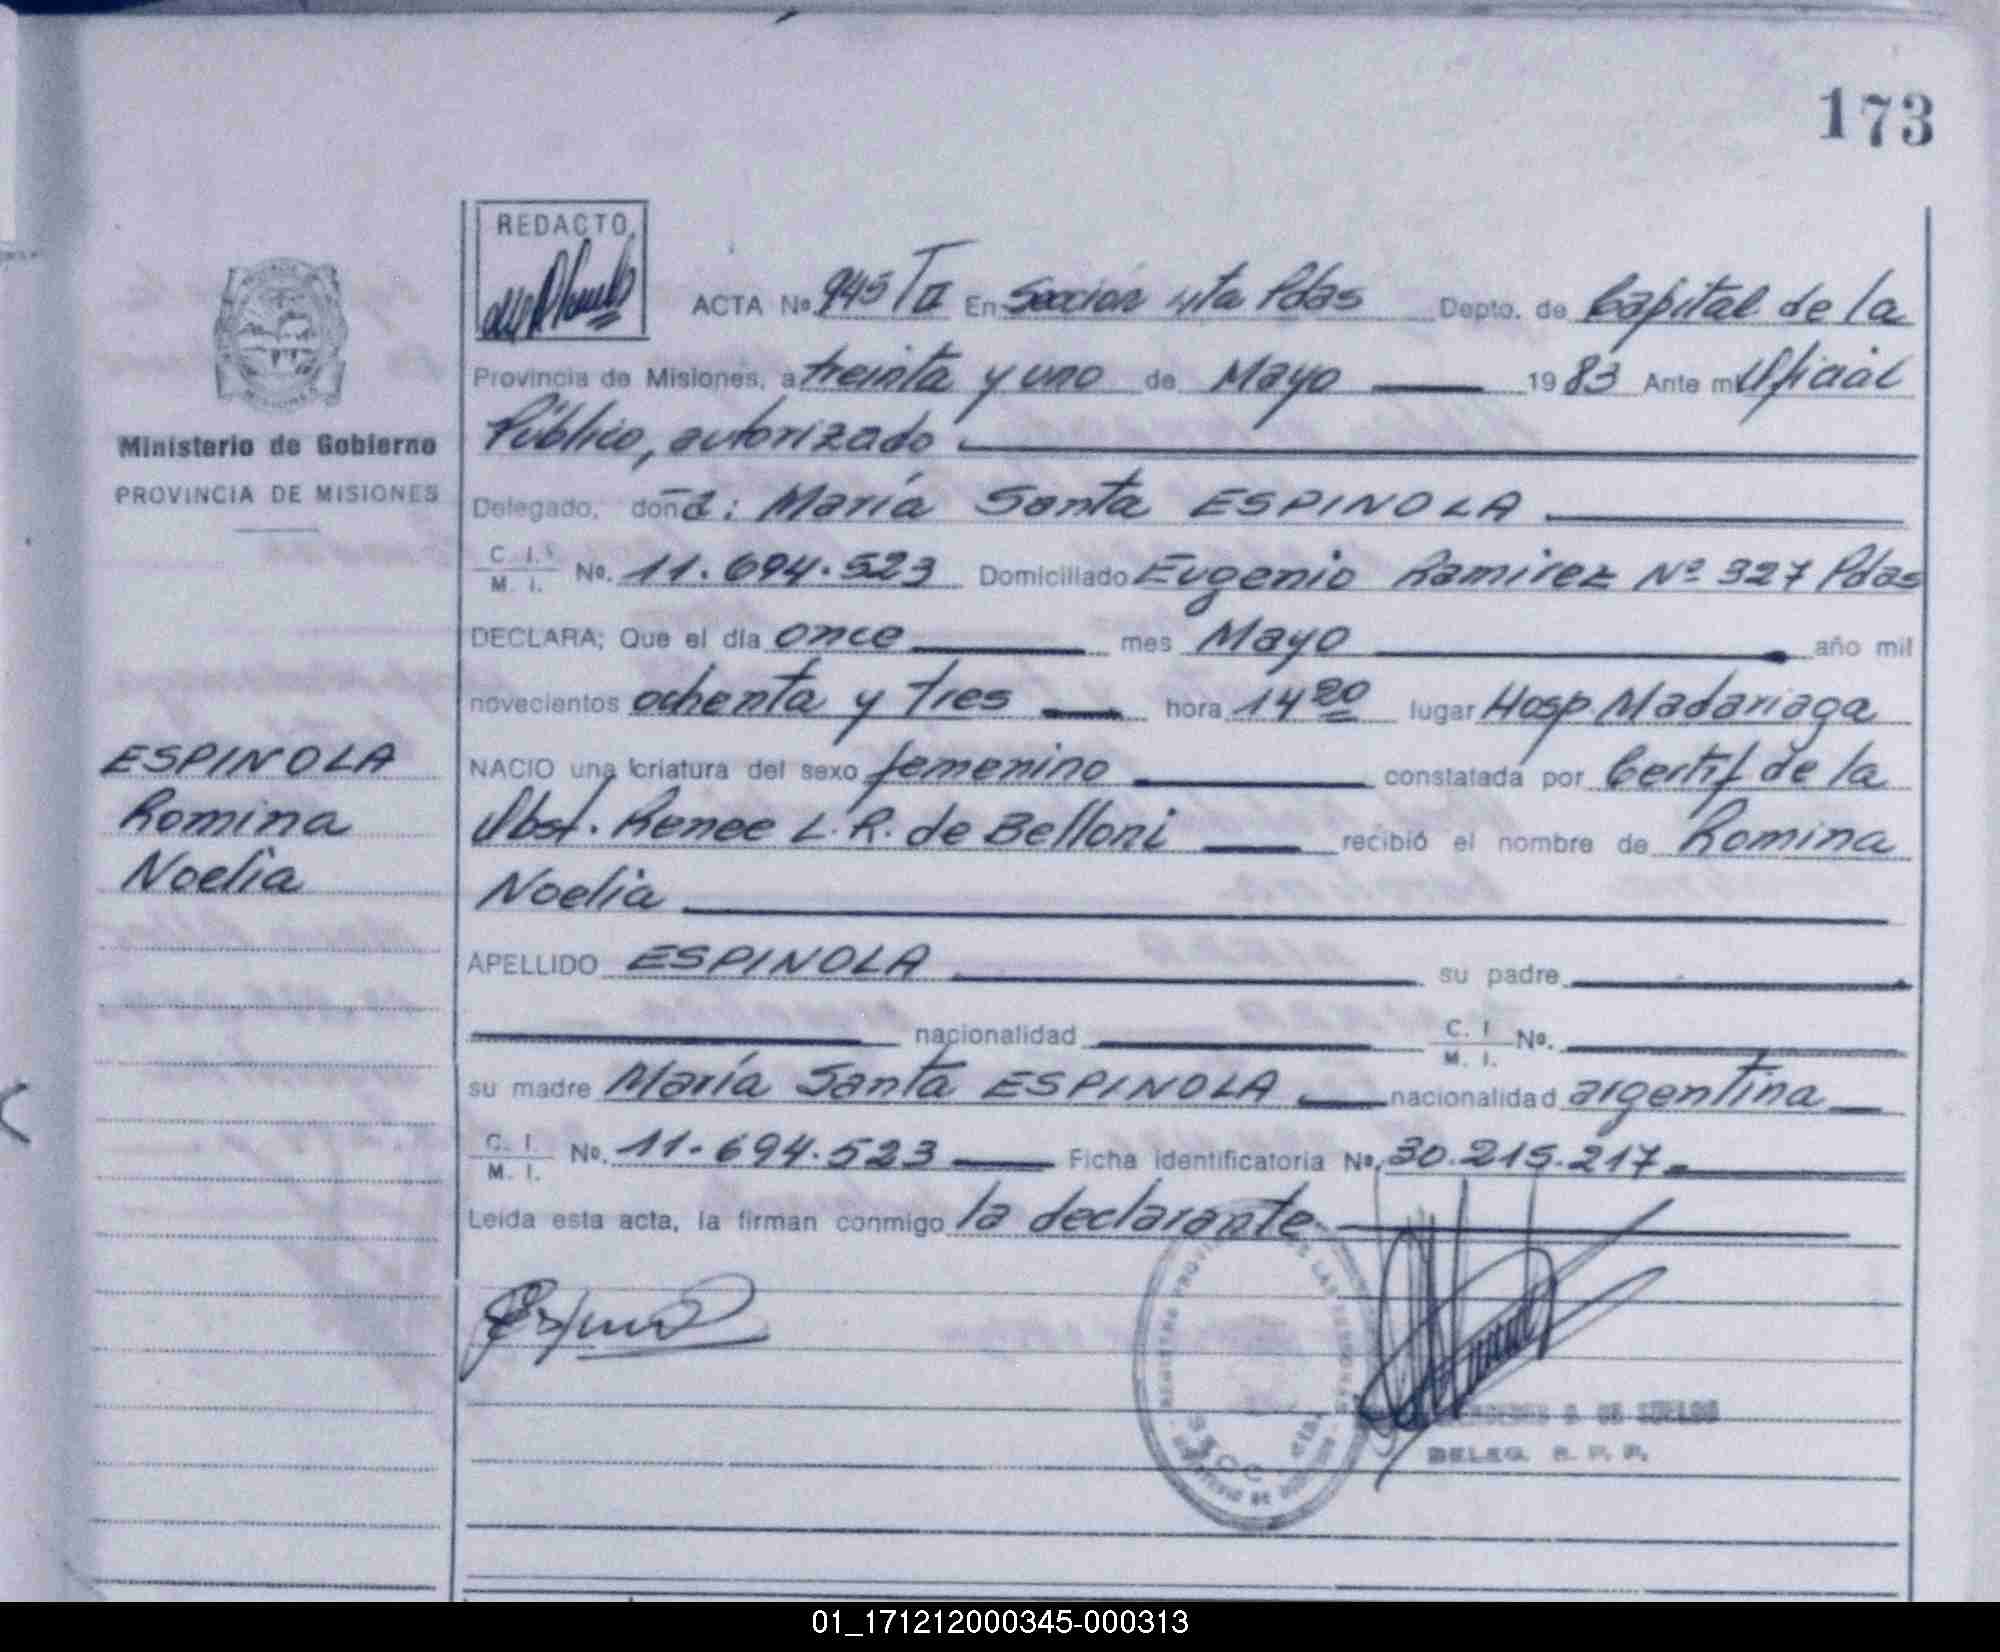 173
REDACTO
ACTA No. 945 T II En Sección 4ta Pdas Depto. de Capital de la
Provincia de Misiones, a treinta y uno de Mayo 1983 Ante mi Oficial
Público, autorizado
Ministerio de Gobierno
PROVINCIA DE MISIONES
Delegado, doña: María Santa ESPINOLA
C. I. M. I. No. 11.694.523 Domiciliado Eugenio Ramirez Nº 327 Pdas
DECLARA; Que el día once mes Mayo año mil
novecientos ochenta y tres hora 14 20 lugar Hosp Madariaga
NACIO una criatura del sexo femenino constatada por Certif de la
Obst. Renee L. R. de Belloni recibió el nombre de Romina
Noelia
ESPINOLA
Romina
Noelia
APELLIDO ESPINOLA su padre
nacionalidad C. I. M. I. No.
su madre María Santa ESPINOLA nacionalidad argentina
C. I. M. I. No. 11.694.523 Ficha identificatoria No. 30.215.217.
Leída esta acta, la firman conmigo la declarante.
DE SUELDO
DELEG. R. P. P.
01_171212000345-000313